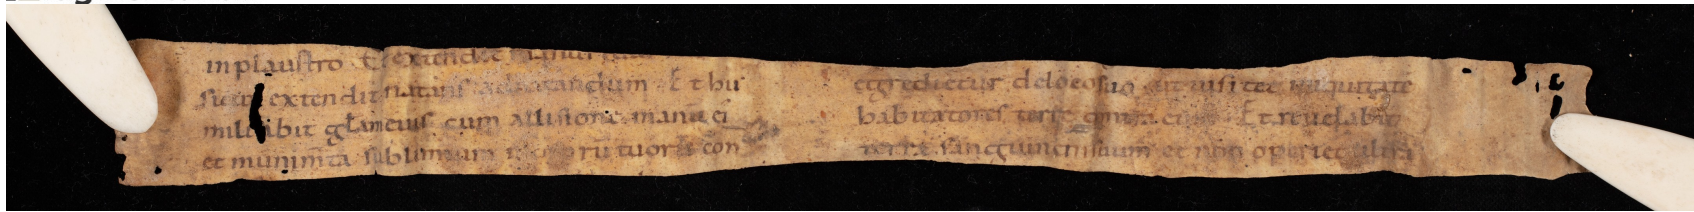 in plaustro et extendet manus
sicut extendit natans ad natandum Et hu
miliabit glam eius cum allisione manuū ei
et munimta sublimium murorū tuorū con
egredietur de loco suo ut uisitet iniquitatē
habitatoris terrę contra eum Et reuelabit
terra sanguinem suum et non operiet ultra